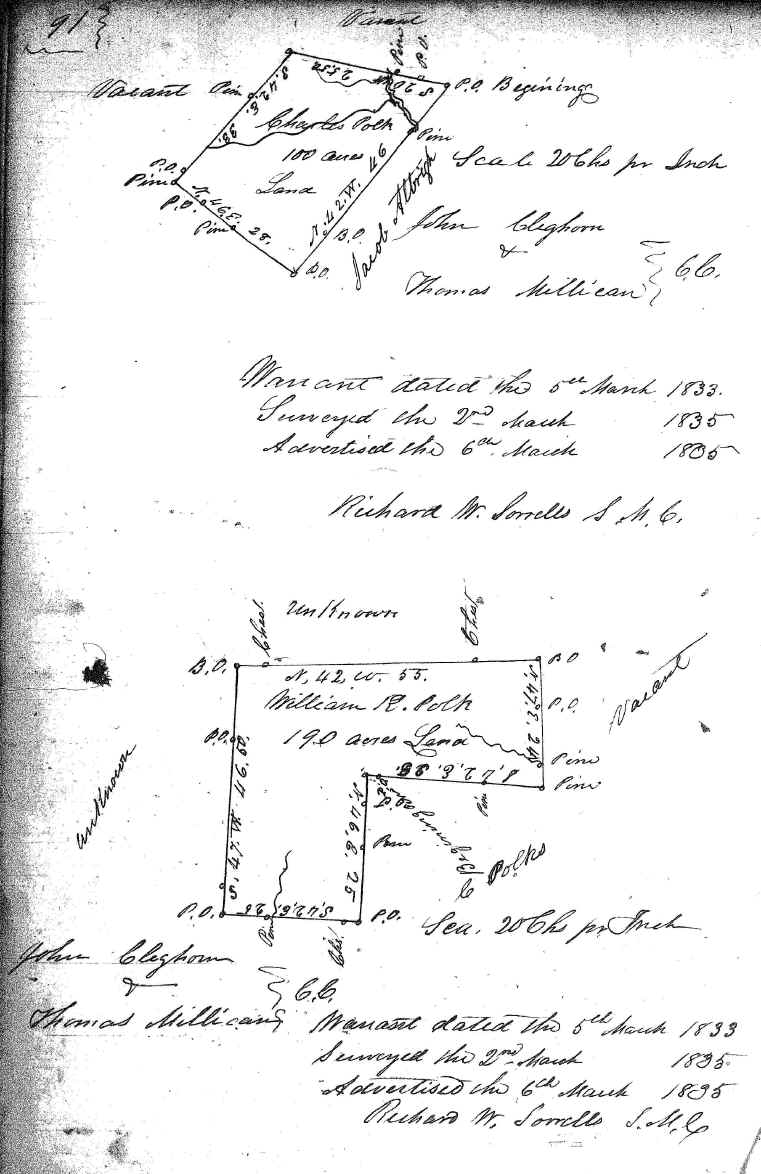 91
Vacant
Pine P.O.
S 20
25.50
P.O. Begining
Vacant Pine
S. 42. E. 38.
Charles Polk
Pine
100 acres
Land
P.O.
Pine
P.O.
N. 46. E. 28.
Pine
N. 42. W. 46
B.O.
B.O.
Jacob Albrigh
Scale 20 Chs pr Inch
John Cleghorn
&
Thomas Millican
C.C.
Warrant dated the 5th March 1833.
Surveyed the 2nd March 1835
Advertised the 6th March 1835
Richard W. Sorrells S. M. C.
Chest.
Unknown
Chest
B.O.
B O
N, 42, W. 55.
William R. Polk
190 acres Land
N, 47, E. 24
P.O.
Vacant
Pine
Pine
P.O.
S. 47. W. 46.50.
Unknown
Pine
Begining
N. 46, E. 25
Pine
C Polks
P.O.
S, 42, E, 26
Pine
Chs.
P.O.
Sca. 20 Chs pr Inch
John Cleghorn
&
Thomas Millican
C.C.
Warrant dated the 5th March 1833
Surveyed the 2nd March 1835
Advertised the 6th March 1835
Richard W. Sorrells S.M.C